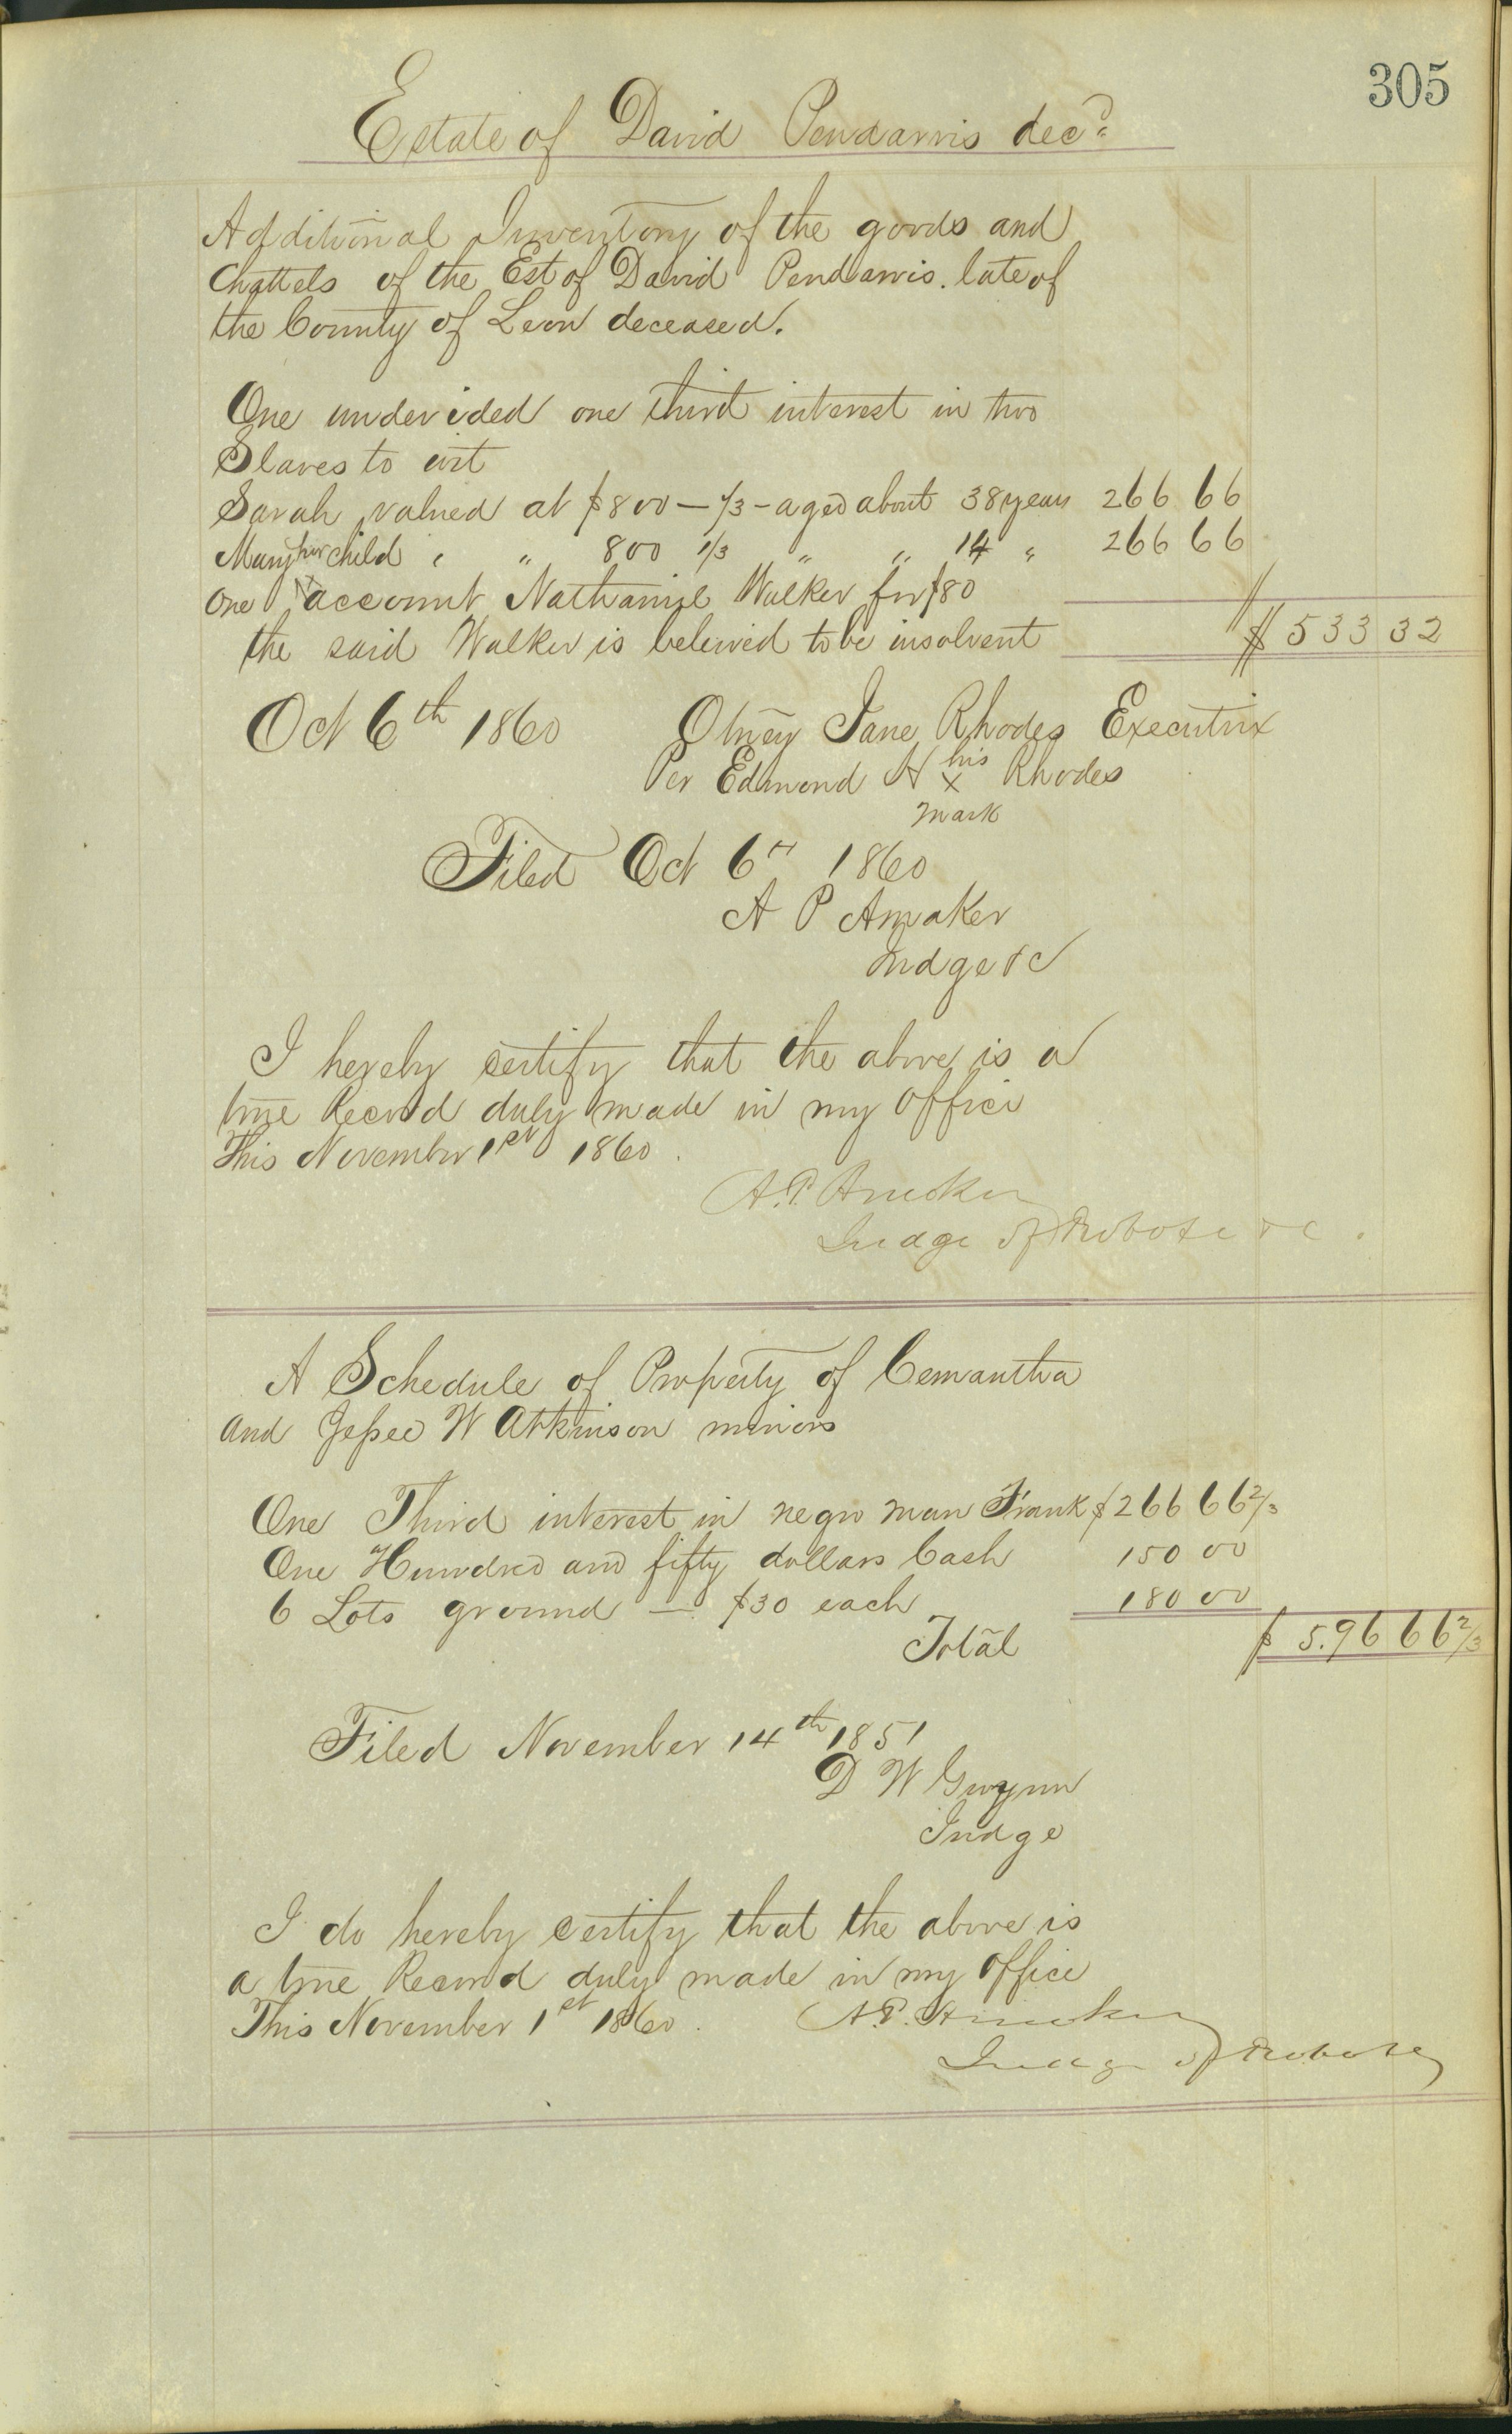 305
Estate of David Pendarvis decd.
Additional Inventory of the goods and
Chattels of the Est of David Pendarvis. late of
the County of Leon deceased.
One undevided one third interest in two
Slaves to wit
Sarah valued at $800 — 1/3 - aged about 38 years 266 66
Mary her child " " 800 1/3 " " 14 " 266 66
One account Nathaniel Walker for $80
the said Walker is beleived to be insolvent $533 32
Oct 6th 1860 Jane Rhodes Executrix
Per Edmond H his x Rhodes
mark
Filed Oct 6th 1860
A P Amaker
Judge &c
I hereby certify that the above is a
true Record duly made in my office
This November 1st 1860.
A.P. Amaker
Judge of Probate &c.
A Schedule of Property of Cemantha
and Jessee W Atkinson minors
One Third interest in negro man Frank $266 66 2/3
One Hundred and fifty dollars Cash 150 00
6 Lots ground — $30 each 180 00
Total $5.96 66 2/3
Filed November 14th 1851
D W Gwynn
Judge
I do hereby certify that the above is
a true Record duly made in my office
This November 1st 1860. A.P. Amaker
Judge of Probate